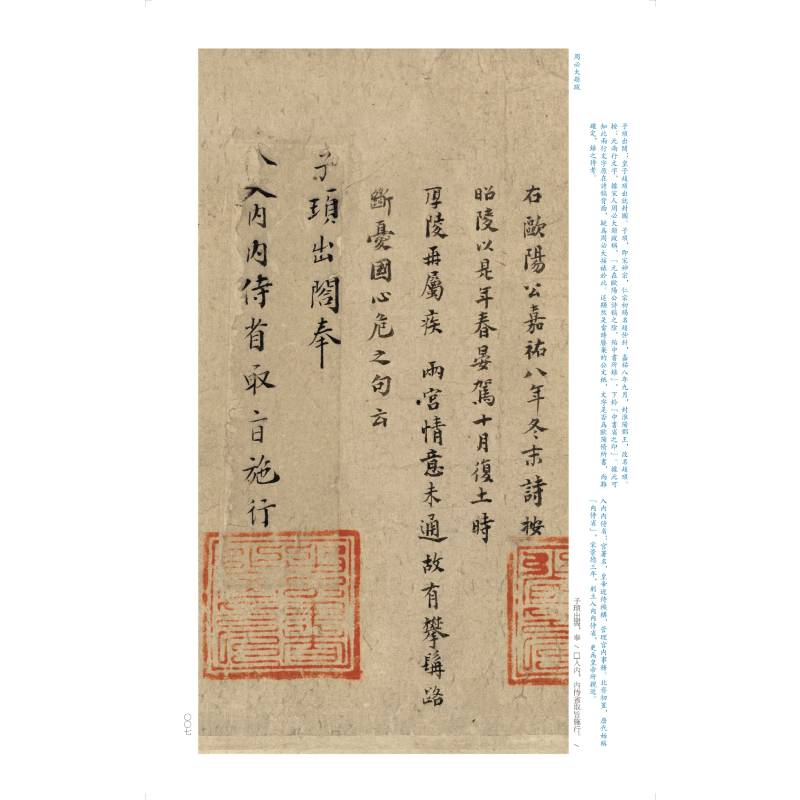 子頊出閣：皇子趙頊出就封國。子頊，即宋神宗，仁宗初賜名趙仲針，嘉祐八年九月，封淮陽郡王，改名趙頊。
按：元兩行文字，據宋人周必大題跋稱，「元在歐陽公詩稿之陰，殆中書所錄」，下鈐「中書省之印」。據此可
知此兩行文字原在詩稿背面，疑爲周必大接裱於此。這顯然是當時廢棄的公文紙，文字是否爲歐陽修所書，尚難
確定，錄之待考。
入內內侍省：官署名，皇帝近侍機構，管理宮內事務。北齊初置，歷代始稱
「內侍省」。宋景德三年，創立入內內侍省，更爲皇帝所親近。
周必大題跋
子頊出閣，奉／□入內，內侍省取旨施行。／
右歐陽公嘉祐八年冬末詩按
昭陵以是年春晏駕十月復土時
厚陵再屬疾 兩宮情意未通故有攀髯路
斷憂國心危之句云
子頊出閤奉
入內內侍省取旨施行
〇〇七